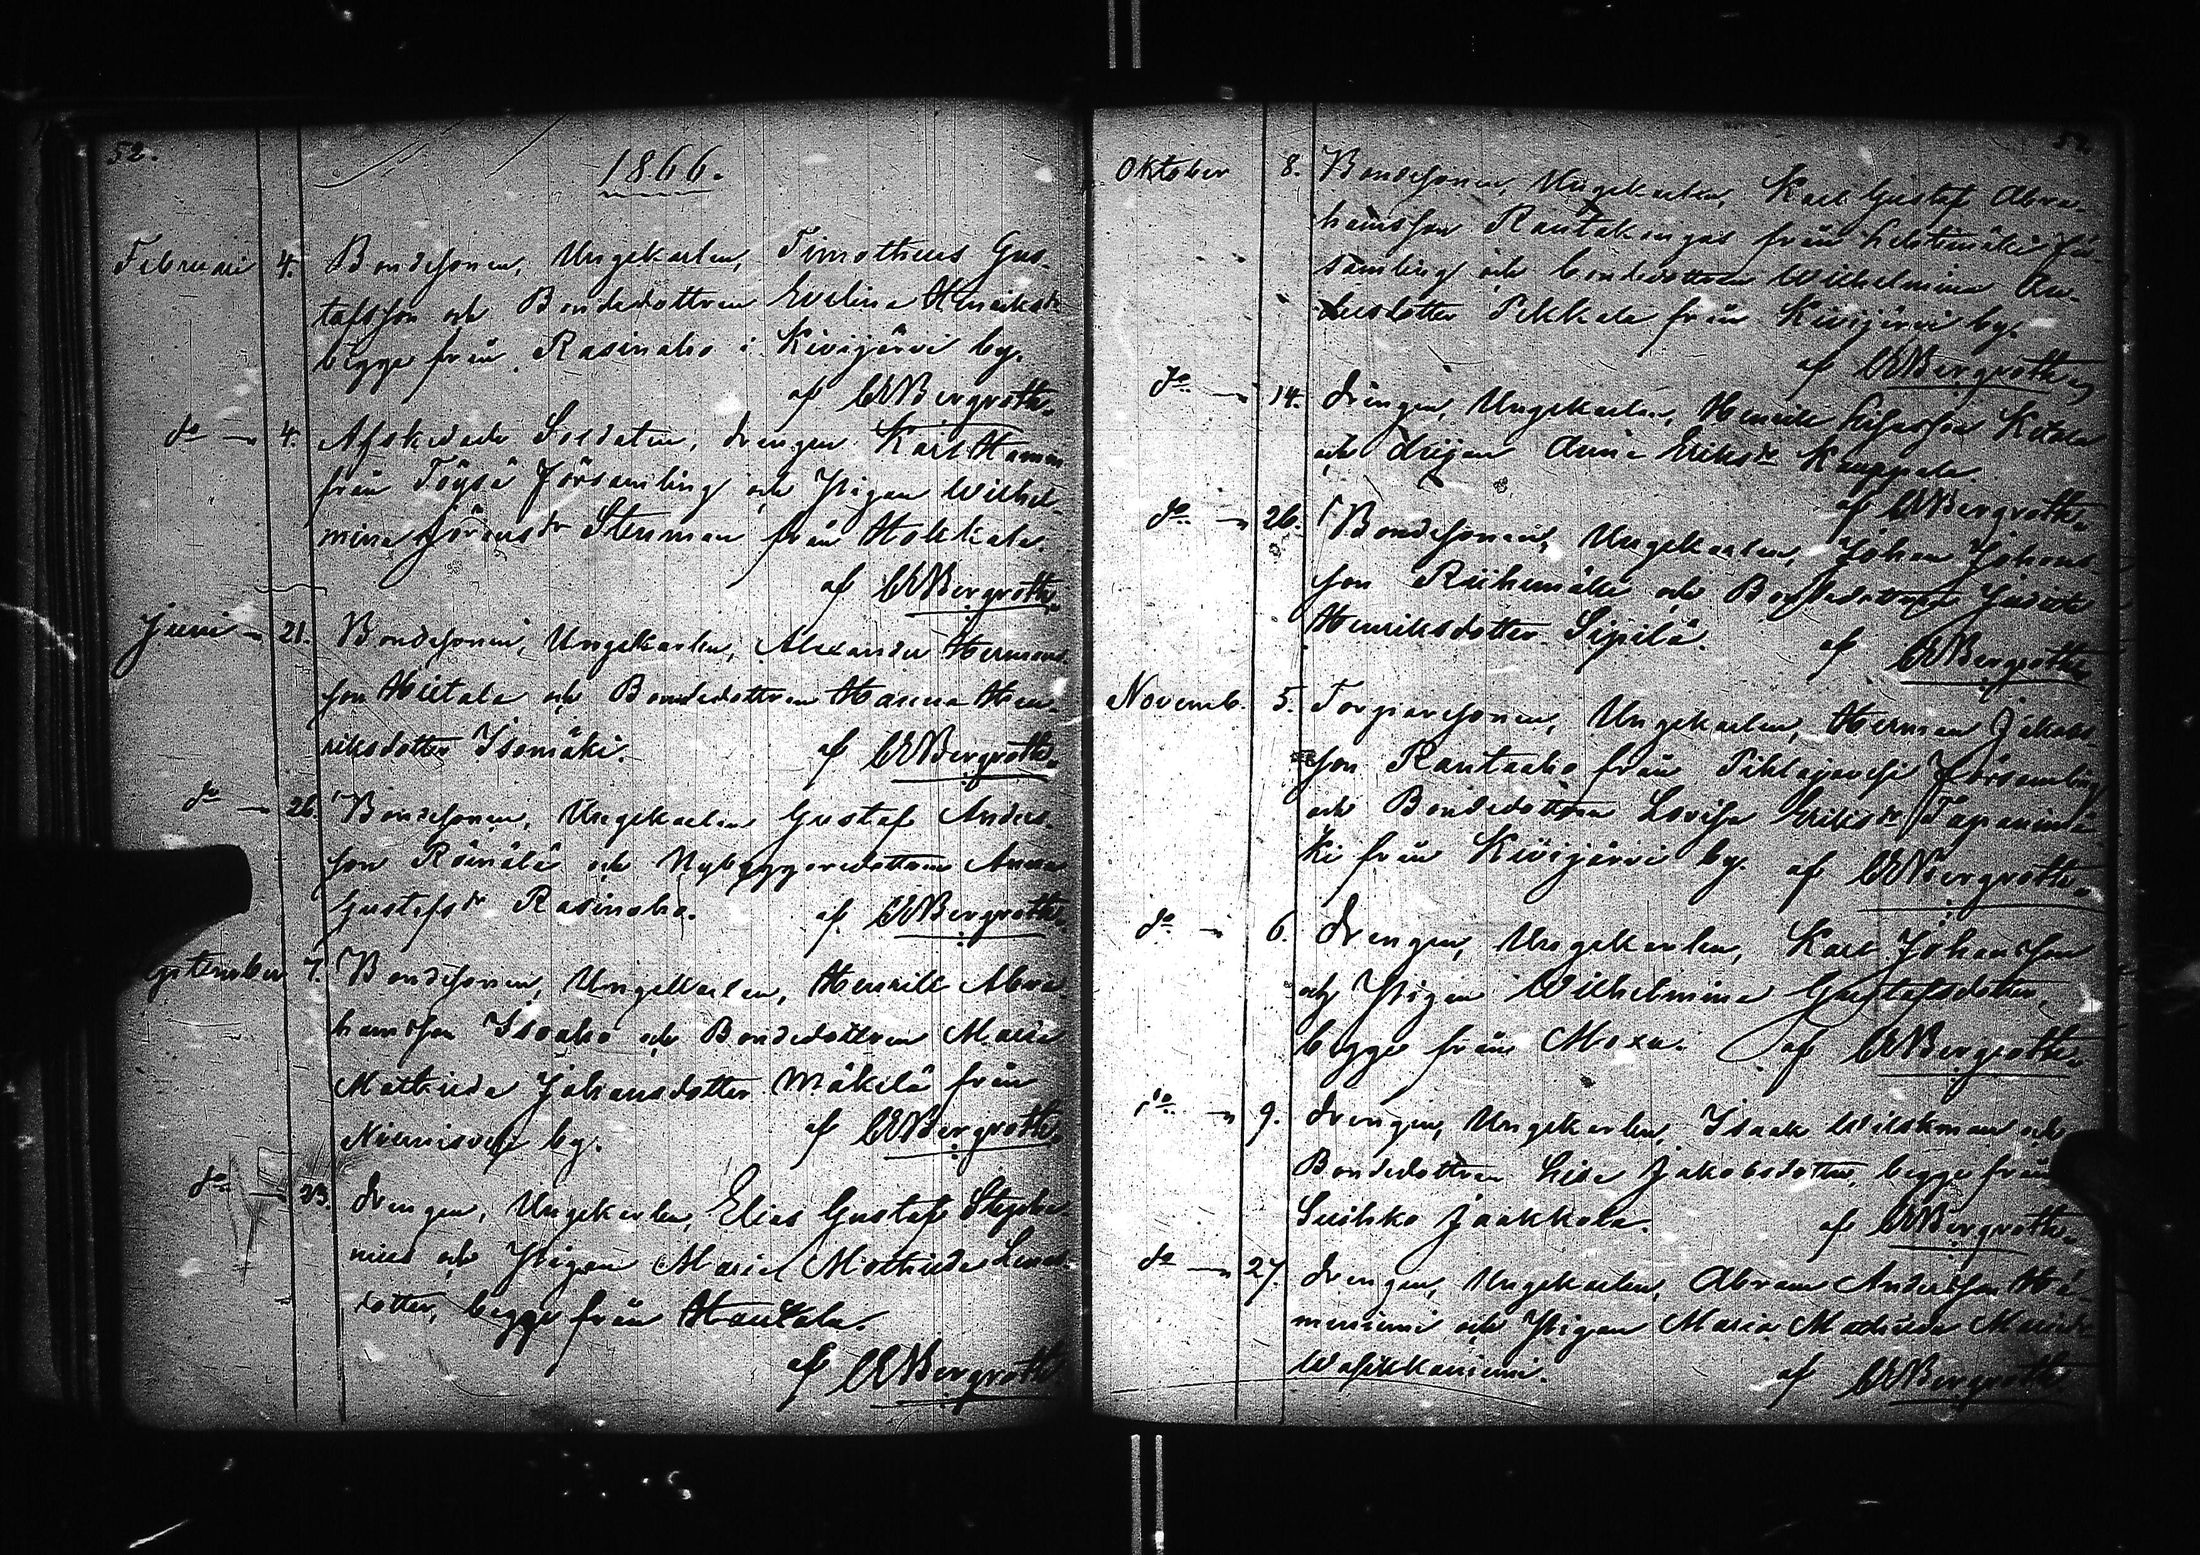 52.
1866.
Februari 4. Bondesonen, Ungekarlen, Timotheus Gus-
tafsson och Bondedottren Evelina Henriksdr
begge från Rasinaho i Kivijärvi by.
af CEBergroth.
do — 4. Afskedade Soldaten, drengen Karl Hamm
från Töysä Församling och Pigan Wilhel-
mina Jöransdr Stenman från Hokkala.
af CEBergroth.
Juni — 21. Bondesonen, Ungekarlen, Alexander Hermans-
son Hietala och Bondedottren Hanna Hen-
riksdotter Isomäki. af CEBergroth.
do — 26. Bondesonen, Ungekarlen Gustaf Anders-
son Röinälä och Nybyggaredottren Anna
Gustafsdr Rasinaho. af CEBergroth.
September 7. Bondesonen, Ungekarlen, Henrik Abra-
hamsson Isoaho och Bondedottren Maria
Mathilda Johansdotter Mäkilä från
Niemisvesi by. af CEBergroth.
do — 23. Drengen, Ungekarlen, Elias Gustaf Stepha-
nius och Pigan Maria Mathilda
dotter, begge från Hautala.
af CEBergroth
52.
Oktober 8. Bondesonen, Ungekarlen, Karl Gustaf Abra-
hamsson Rautakangas från Lehtimäki För-
samling och bondedottren Wilhelmina
Pekkala från Kivijärvi by.
af CEBergroth
do — 14. Drengen, Ungekarlen, Henrik
och Pigan Anna Eriksdr Kauppala.
af CEBergroth.
do — 26. Bondesonen, Ungekarlen, Johan Johans-
son Riihimäki och Bondedottren
Henriksdotter Sipilä. af CEBergroth
Novemb. 5. Torparesonen, Ungekarlen, Herman Jakobs-
son Rautaaho från Pihlajavesi Församling
och Bondedottren Lovisa Eriksdr Tapanimä-
ki från Kivijärvi by. af CEBergroth.
do — 6. Drengen, Ungekarlen, Karl Johansson
och Pigan Wilhelmina Gustafsdotter,
begge från Moxa. af CEBergroth.
do — 9. Drengen, Ungekarlen, Isaak Wilkman och
Bondedottren Lisa Jakobsdotter, begge från
Jaakkola. af CEBergroth.
do — 27. Drengen, Ungekarlen, Abram Andersson Hä-
meniemi och Pigan Maria Mathilda
Wasikkaniemi. af CEBergroth.